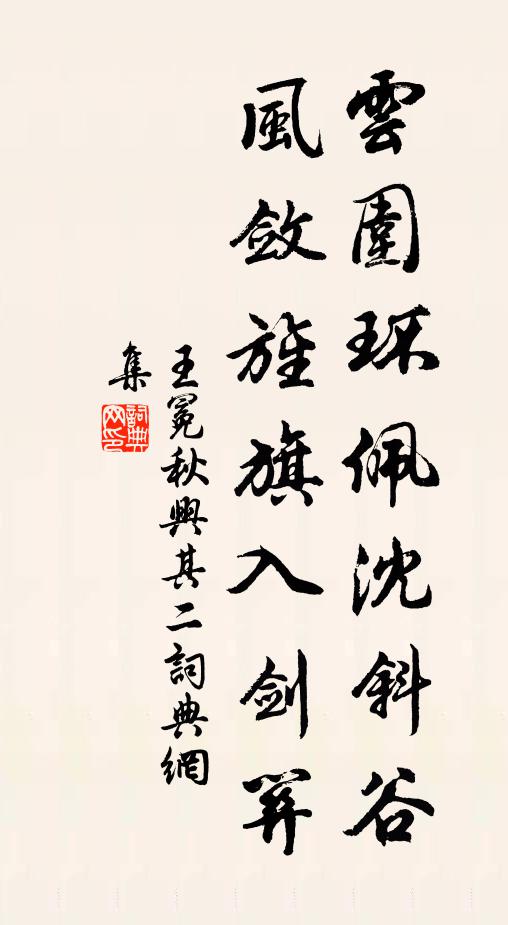 雲圍环佩沈斜谷
風斂旌旗入剑關
王冕秋興其二詞典網
集
詞典
网印